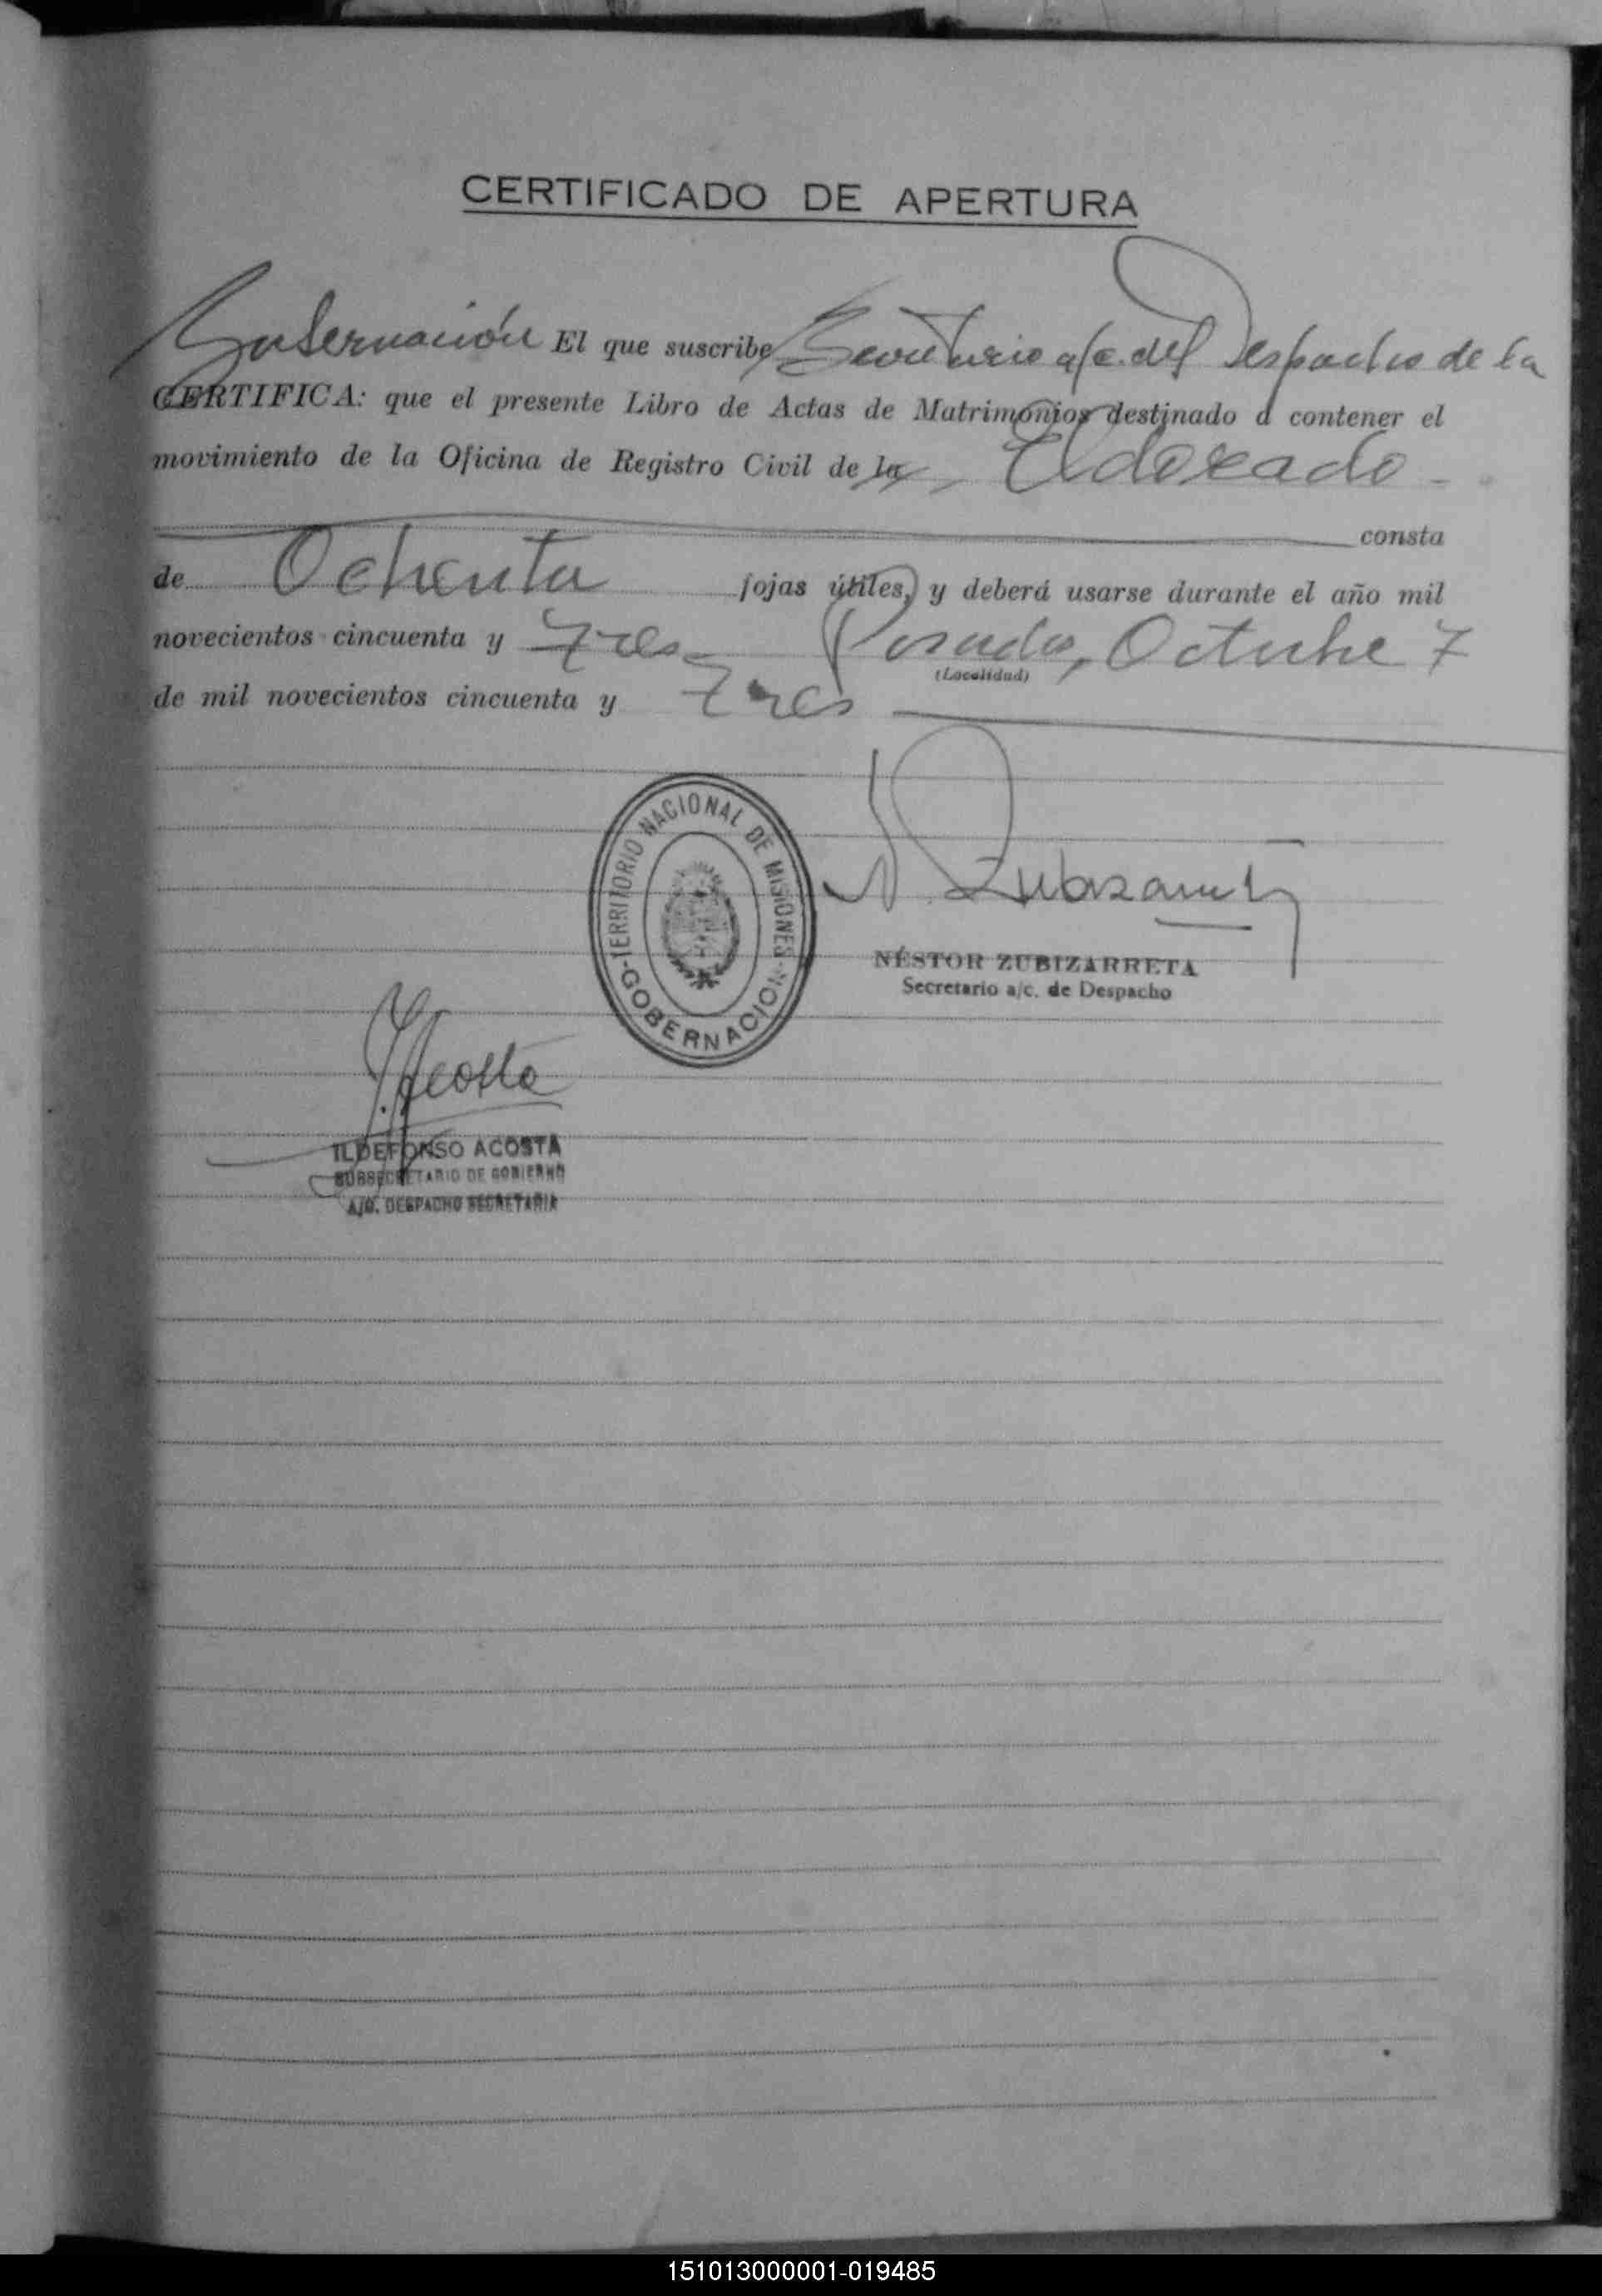 CERTIFICADO DE APERTURA
Gobernación El que suscribe Secretario a/c. del Despacho de la
CERTIFICA: que el presente Libro de Actas de Matrimonios destinado á contener el
movimiento de la Oficina de Registro Civil de la Eldorado
consta
de Ochenta fojas útiles, y deberá usarse durante el año mil
novecientos cincuenta y tres Posadas, Octubre 7
(Localidad)
de mil novecientos cincuenta y tres
TERRITORIO NACIONAL DE MISIONES
-GOBERNACION-
N. Zubizarreta
NÉSTOR ZUBIZARRETA
Secretario a/c. de Despacho
I. Acosta
ILDEFONSO ACOSTA
SUBSECRETARIO DE GOBIERNO
A/C. DESPACHO SECRETARIA
151013000001-019485